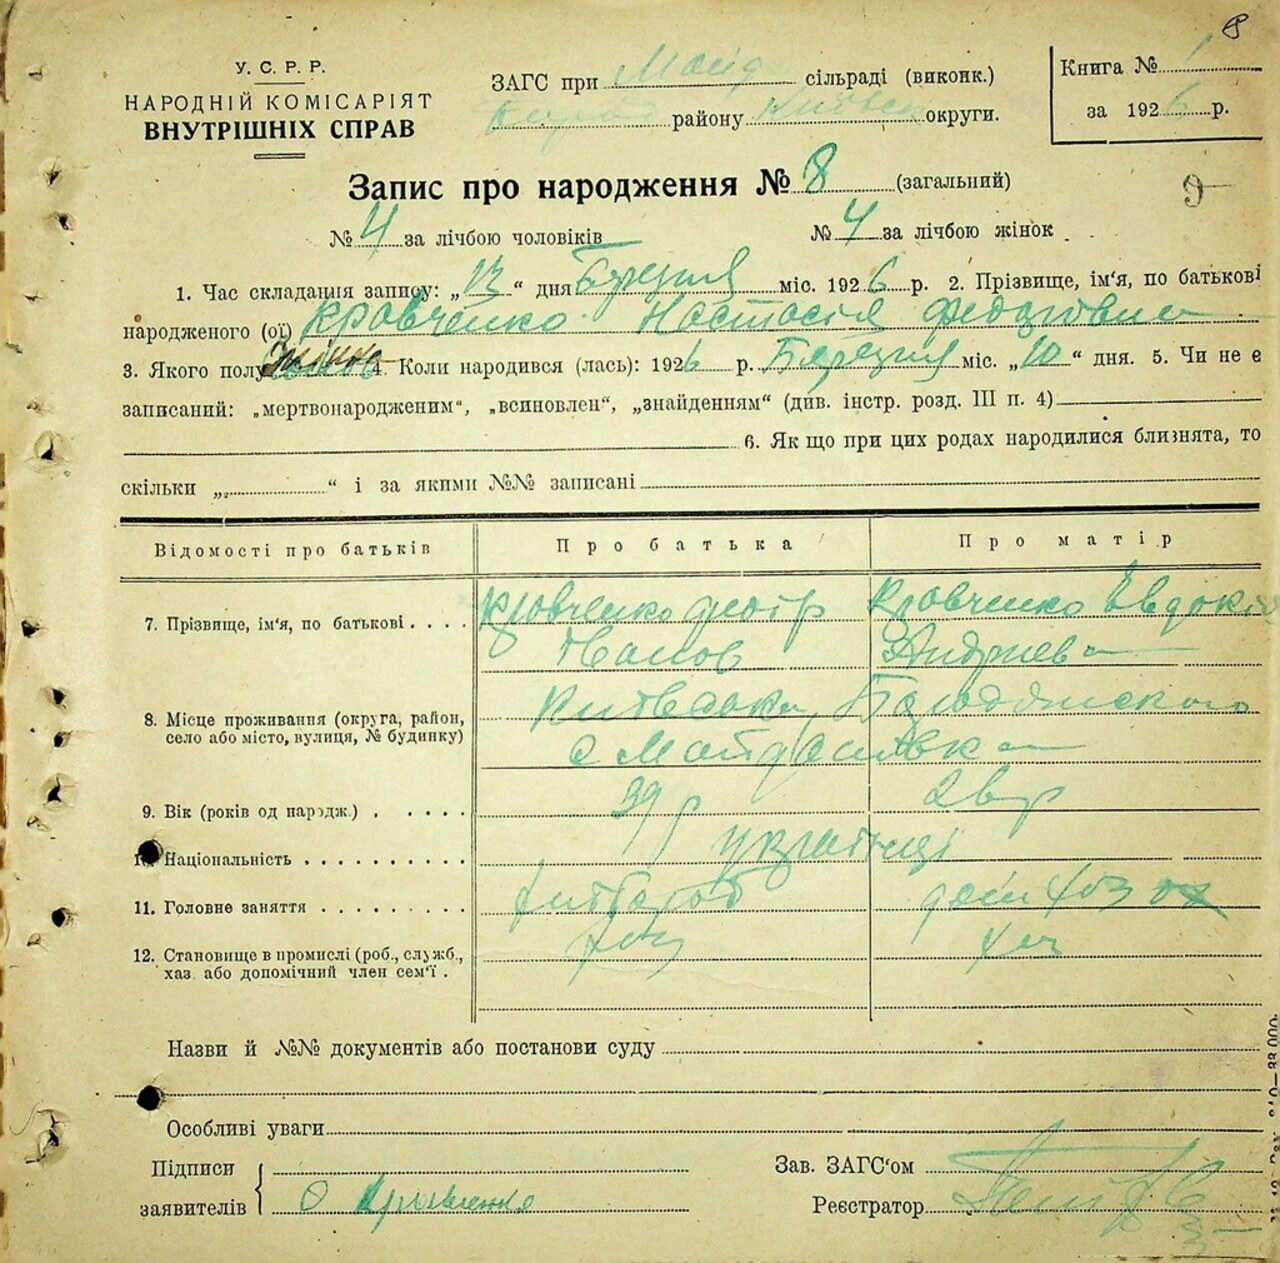 8
У. С. Р. Р.
НАРОДНІЙ КОМІСАРІЯТ
ВНУТРІШНІХ СПРАВ
ЗАГС при Майд сільраді (виконк.)
району Київськ округи.
Книга № 1
за 1926 р.
Запис про народження № 8 (загальний)
9
№ 4 за лічбою чоловіків № 4 за лічбою жінок
1. Час складання запису: „13“ дня Березня міс. 1926 р. 2. Прізвище, ім'я, по батькові
народженого (ої) Кравченко Настасія Федоровна
3. Якого полу 4. Коли народився (лась): 1926 р. Березня міс. „10“ дня. 5. Чи не є
записаний: „мертвонародженим“, „всиновлен“, „знайденням“ (див. інстр. розд. III п. 4)
6. Як що при цих родах народилися близнята, то
скільки „ “ і за якими №№ записані
Відомості про батьків Про батька Про матір
7. Прізвище, ім'я, по батькові Кравченко Федір Кравченко Евдокія
Іванов Андриева
8. Місце проживання (округа, район, село або місто, вулиця, № будинку) Київська, Бородянского
с Майданівка
9. Вік (років од народж.) 39 р
10. Національність українці
11. Головне заняття хлібороб дом хоз
12. Становище в промислі (роб., служб., хаз. або допомічний член сем'ї. хоз
Назви й №№ документів або постанови суду
Особливі уваги
Підписи
заявителів О Кравченко
Зав. ЗАГС'ом
Реєстратор